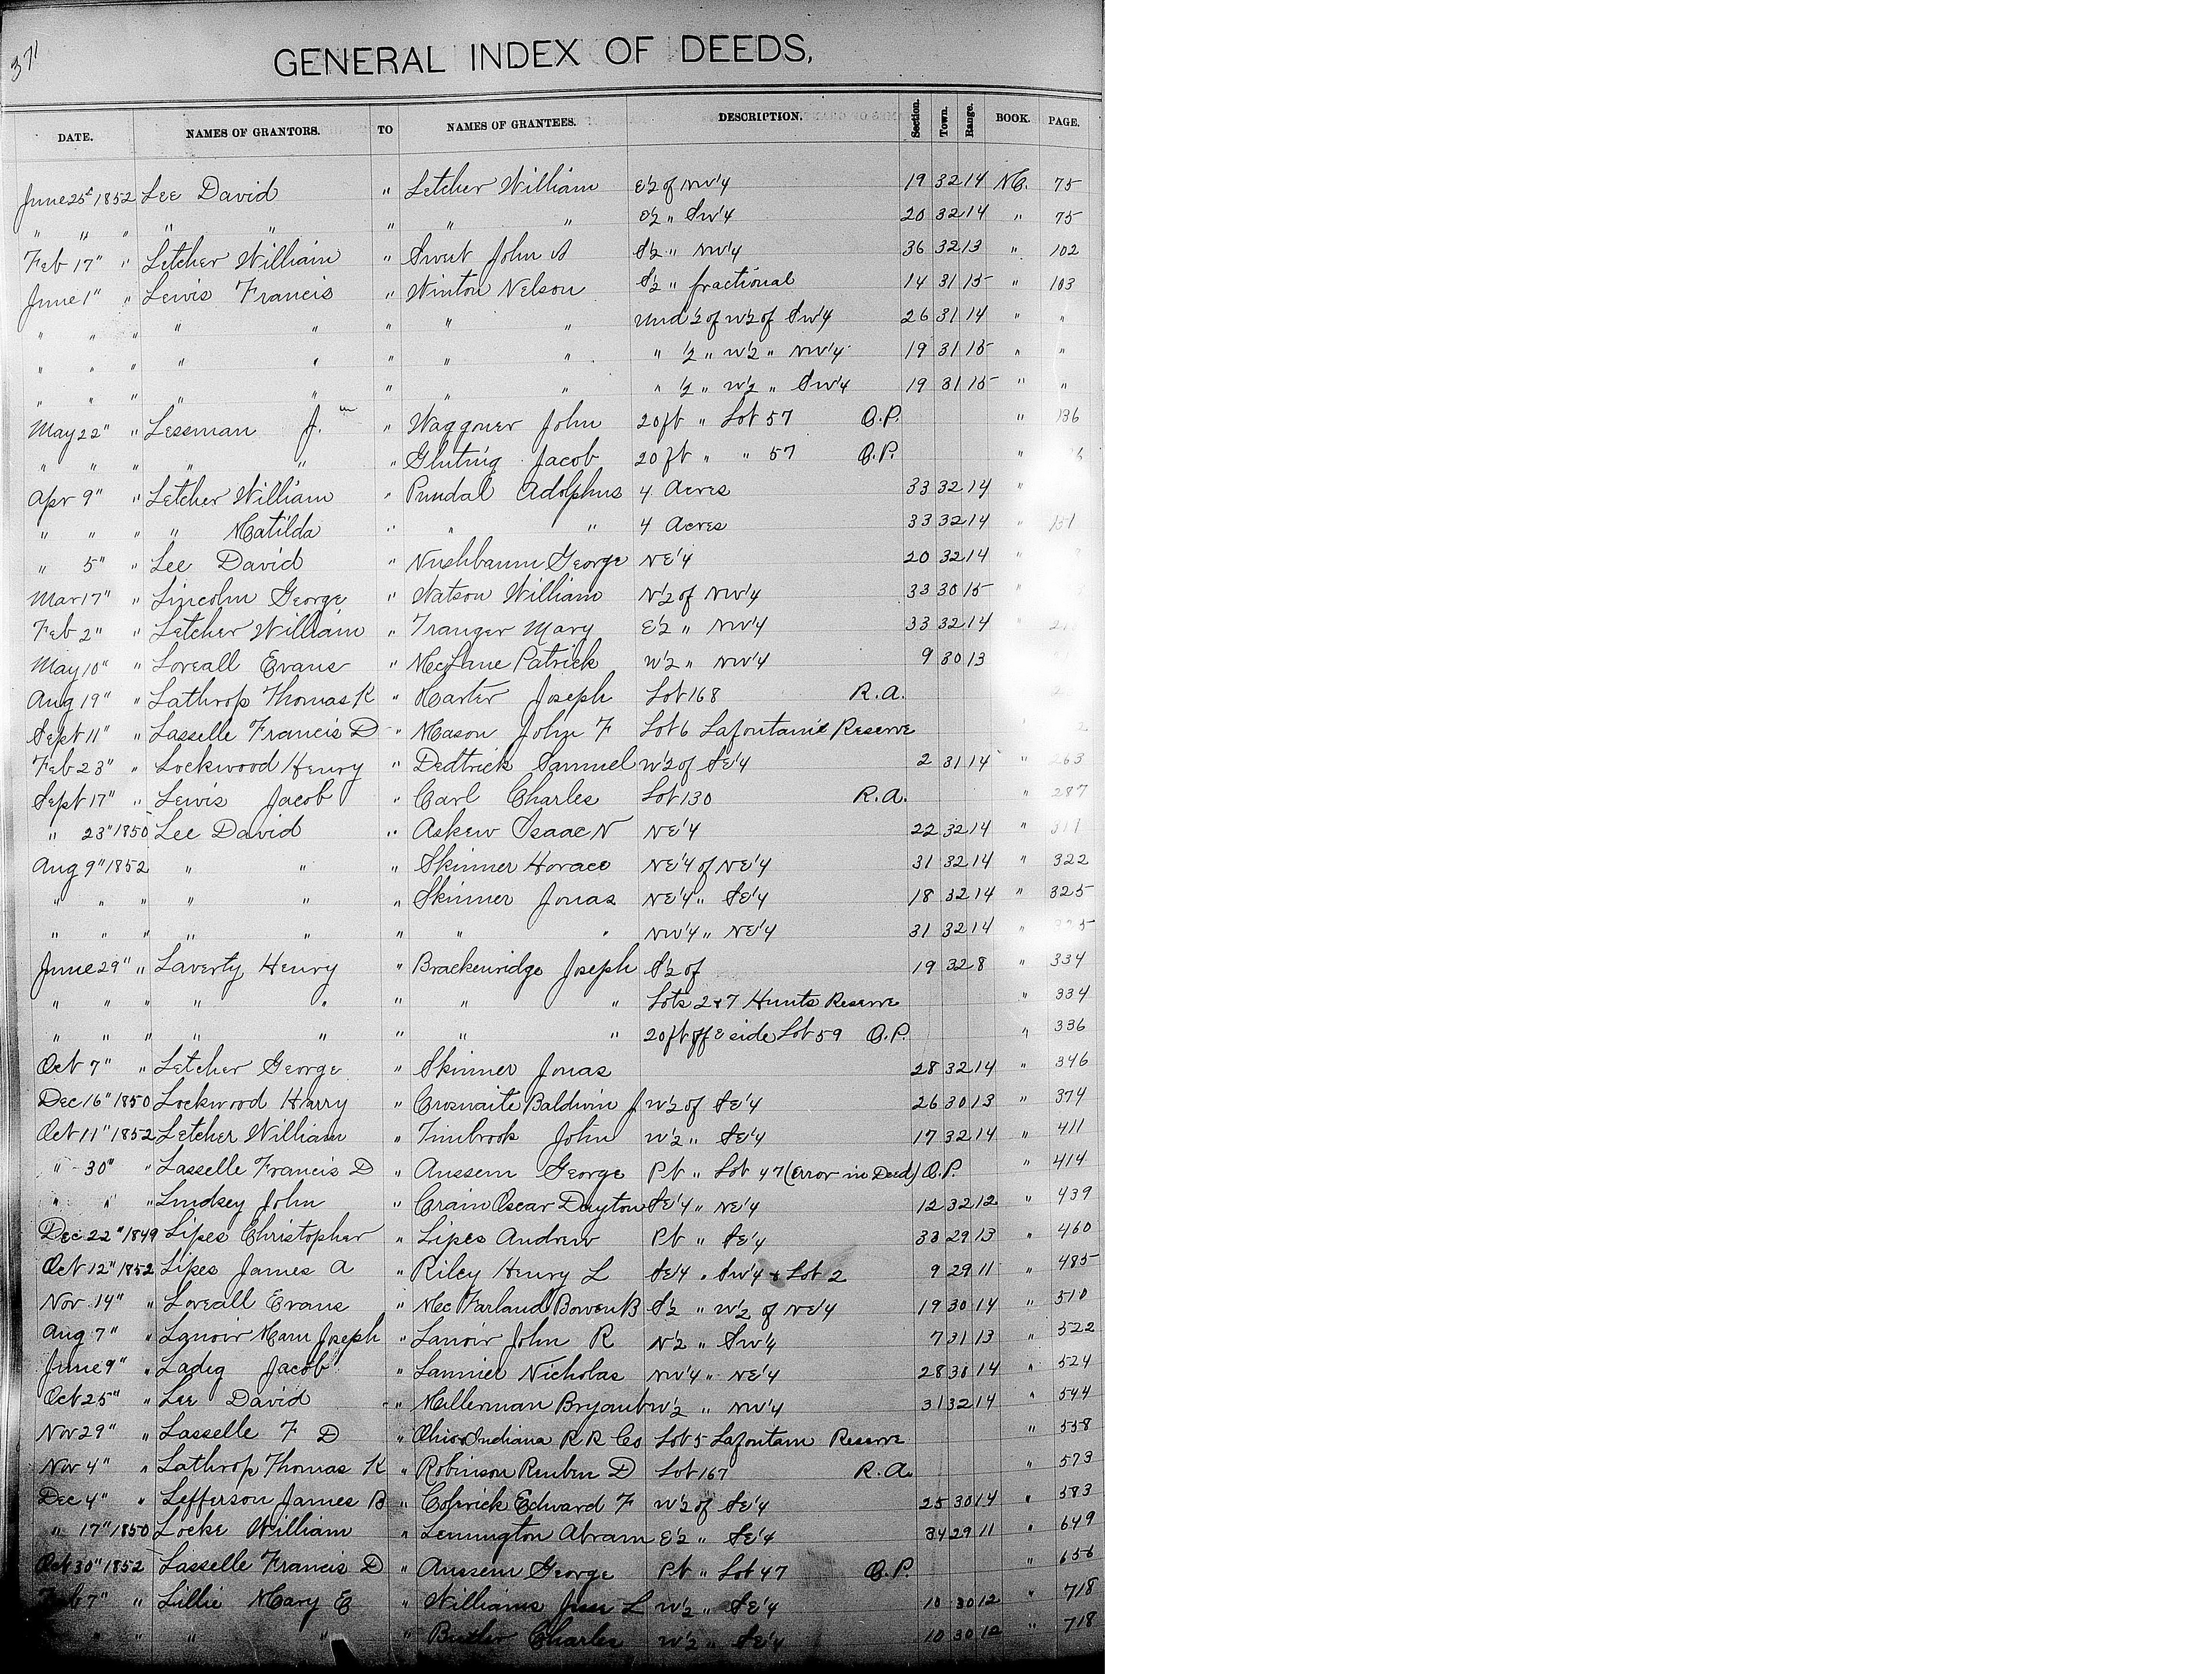 371
GENERAL INDEX OF DEEDS,
DATE. NAMES OF GRANTORS. TO NAMES OF GRANTEES. DESCRIPTION. Section. Town. Range. BOOK. PAGE.
June 25" 1852 Lee David " Letcher William E½ of NW¼ 19 32 14 75
" " " " " " " " " SW¼ 20 32 14 " 75
Feb 17" " Letcher William " Sweet John S½ " NW¼ 36 32 13 " 102
June 1" " Lewis Francis " Winton Nelson S½ " fractional 14 31 15 " 103
" " " " " " " " Und ½ of W½ of SW¼ 26 31 14 " "
" " " " " " " " " ½ " W½ " NW¼ 19 31 15 " "
" " " " " " " " " ½ " W½ " SW¼ 19 31 15 " "
May 22" " Lessman J. " Waggner John 20 ft " Lot 57 O.P. " 136
" " " " " " Jacob 20 ft " " 57 O.P. "
Apr 9" " Letcher William " Adolphus 4 Acres 33 32 14 "
" " " " Matilda " " " 4 Acres 33 32 14 " 151
" 5" " Lee David " Nushbaum George NE¼ 20 32 14 "
Mar 17" " Lincoln George " Watson William N½ of NW¼ 33 30 15 "
Feb 2" " Letcher William " Mary E½ " NW¼ 33 32 14 "
May 10" " Loveall Evans " McLane Patrick W½ " NW¼ 9 30 13
Aug 19" " Lathrop Thomas K " Harter Joseph Lot 168 R.A.
Sept 11" " Lasselle Francis D " Mason John F Lot 6 Lafontain's Reserve
Feb 23" " Lockwood Henry " Dedtrick Samuel W½ of SE¼ 2 31 14 " 263
Sept 17" " Lewis Jacob " Carl Charles Lot 130 R.A. " 287
" 23" 1850 Lee David " Askew Isaac N NE¼ 22 32 14 "
Aug 9" 1852 " " " Skinner Horace NE¼ of NE¼ 31 32 14 " 322
" " " " " " Skinner Jonas NE¼ " SE¼ 18 32 14 " 325
" " " " " " " " NW¼ " NE¼ 31 32 14 " 325
June 29" " Laverty Henry " Brackenridge Joseph S½ of 19 32 8 " 334
" " " " " " " " Lots 2 & 7 Hunts Reserve " 334
" " " " " " " " 20 ft off E side Lot 59 O.P. " 336
Oct 7" " Letcher George " Skinner Jonas 28 32 14 " 346
Dec 16" 1850 Lockwood Harry " Croswaite Baldwin J W½ of SE¼ 26 30 13 " 374
Oct 11" 1852 Letcher William " Timbrook John W½ " SE¼ 17 32 14 " 411
" 30" " Lasselle Francis D " Aussem George Pt " Lot 47 (Error in Deed) O.P. " 414
" " " Lindsey John " Crain Oscar Dayton SE¼ " NE¼ 12 32 12 " 439
Dec 22" 1849 Lipes Christopher " Lipes Andrew Pt " SE¼ 33 29 13 " 460
Oct 12" 1852 Lipes James A " Riley Henry L SE¼ " SW¼ & Lot 2 9 29 11 " 485
Nov 14" " Loveall Evans " McFarland Bowen B S½ " W½ of NE¼ 19 30 14 " 510
Aug 7" " Lanoir Joseph " Lanoir John R N½ " SW¼ 7 31 13 " 522
June 9" " Ladig Jacob " Nicholas NW¼ " NE¼ 28 30 14 " 524
Oct 25" " Lee David " Hellerman Bryant W½ " NW¼ 31 32 14 " 544
Nov 29" " Lasselle F D " Ohio & Indiana R R Co Lot 5 Lafontain Reserve " 558
Nov 4" " Lathrop Thomas K " Robinson Reuben D Lot 167 R.A. " 573
Dec 4" " Lefferson James B " Edward F W½ of SE¼ 25 30 14 " 583
" 17" 1850 Locke William " Lennington Abram E½ " SE¼ 34 29 11 " 649
Oct 30" 1852 Lasselle Francis D " Aussem George Pt " Lot 47 O.P. " 656
Feb 7" " Lillie Mary E " Williams Jesse L W½ " SE¼ 10 30 12 " 718
" " " " " " Butler Charles W½ " SE¼ 10 30 12 " 718